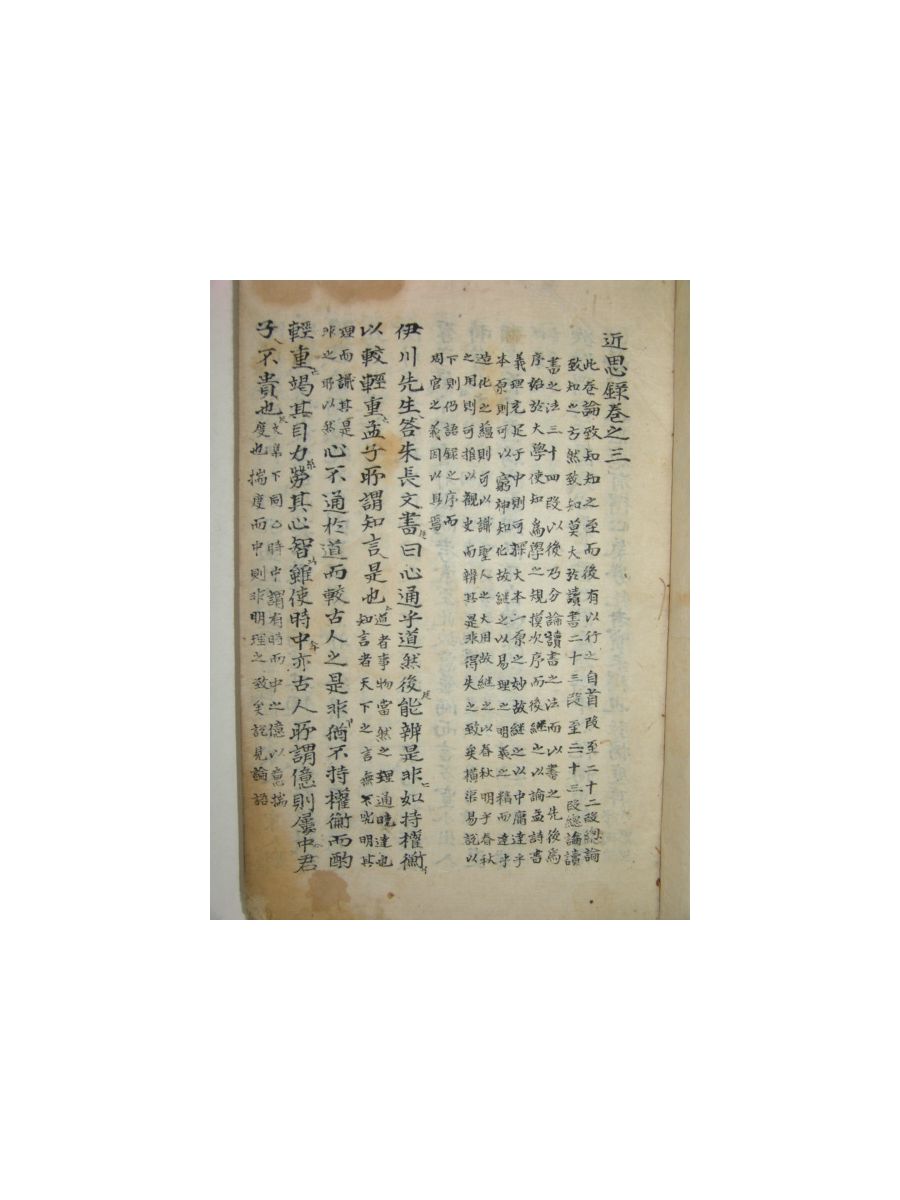 近思録巻之三
此卷論致知知之至而後有以行之自首段至二十二段總論
致知之方然致知莫大於讀書二十三段至三十三段總論讀
書之法三十四段以後乃分論讀書之法而以書之先後爲
序始於大學使知爲學之規模次序而後継之以論孟詩書
義理充足于中則可探大本一原之妙故継之以中庸達乎
本原則可以窮神知化故継之以易理之明義之精而達乎
造化之蘊則可以識聖人之大用故継之以春秋明乎春秋
之用則可推以觀史而辨其是非得失之致矣橫渠易說以
下則仍語録之序而
周官之義因以具焉
伊川先生答朱長文書曰心通乎道然後能辨是非如持權衡
以較輕重孟子所謂知言是也道者事物當然之理通曉達也
知言者天下之言無不究明其
理而識其是
非之所以然心不通於道而較古人之是非猶不持權衡而酌
輕重竭其目力勞其心智雖使時中亦古人所謂億則屢中君
子不貴也文集下同乙時中謂有時而中之億以意揣
度也揣度而中則非明理之致矣說見論語